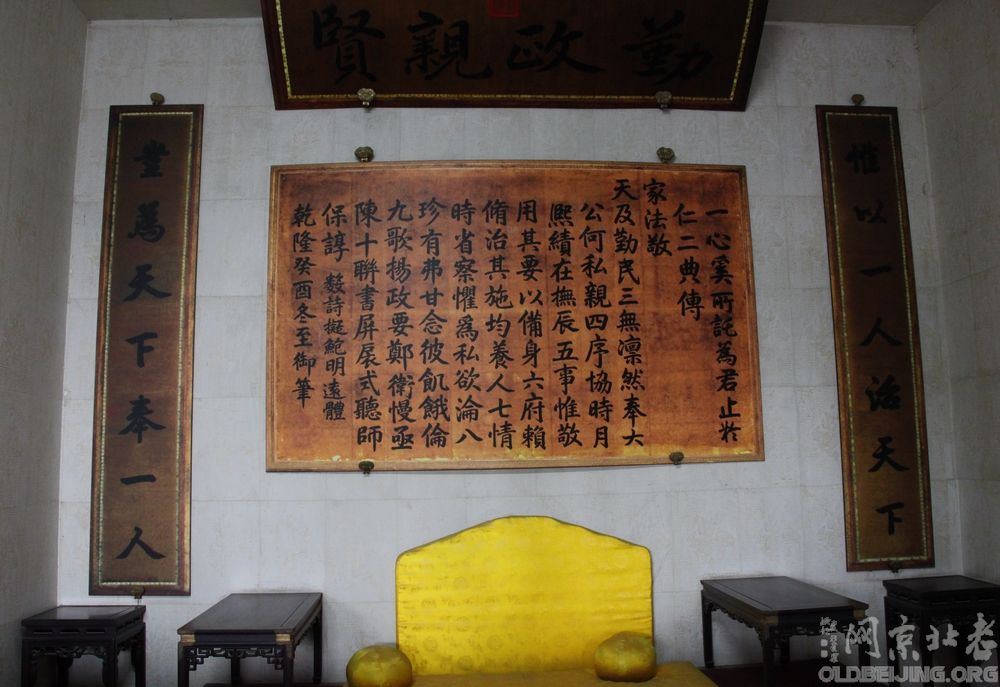 勤政親賢
惟以一人治天下
一心奚所託為君止於
仁二典傳
家法敬
天及勤民三無凛然奉大
公何私親四序協時月
熙績在撫辰五事惟敬
用其要以備身六府賴
脩治其施均養人七情
時省察懼爲私欲淪八
珍有弗甘念彼飢餓倫
九歌揚政要鄭衛慢亟
陳十聯書屏扆式聽師
保諄 數詩擬鮑明遠體
乾隆癸酉冬至御筆
豈爲天下奉一人
老北京網
OLDBEIJING.ORG